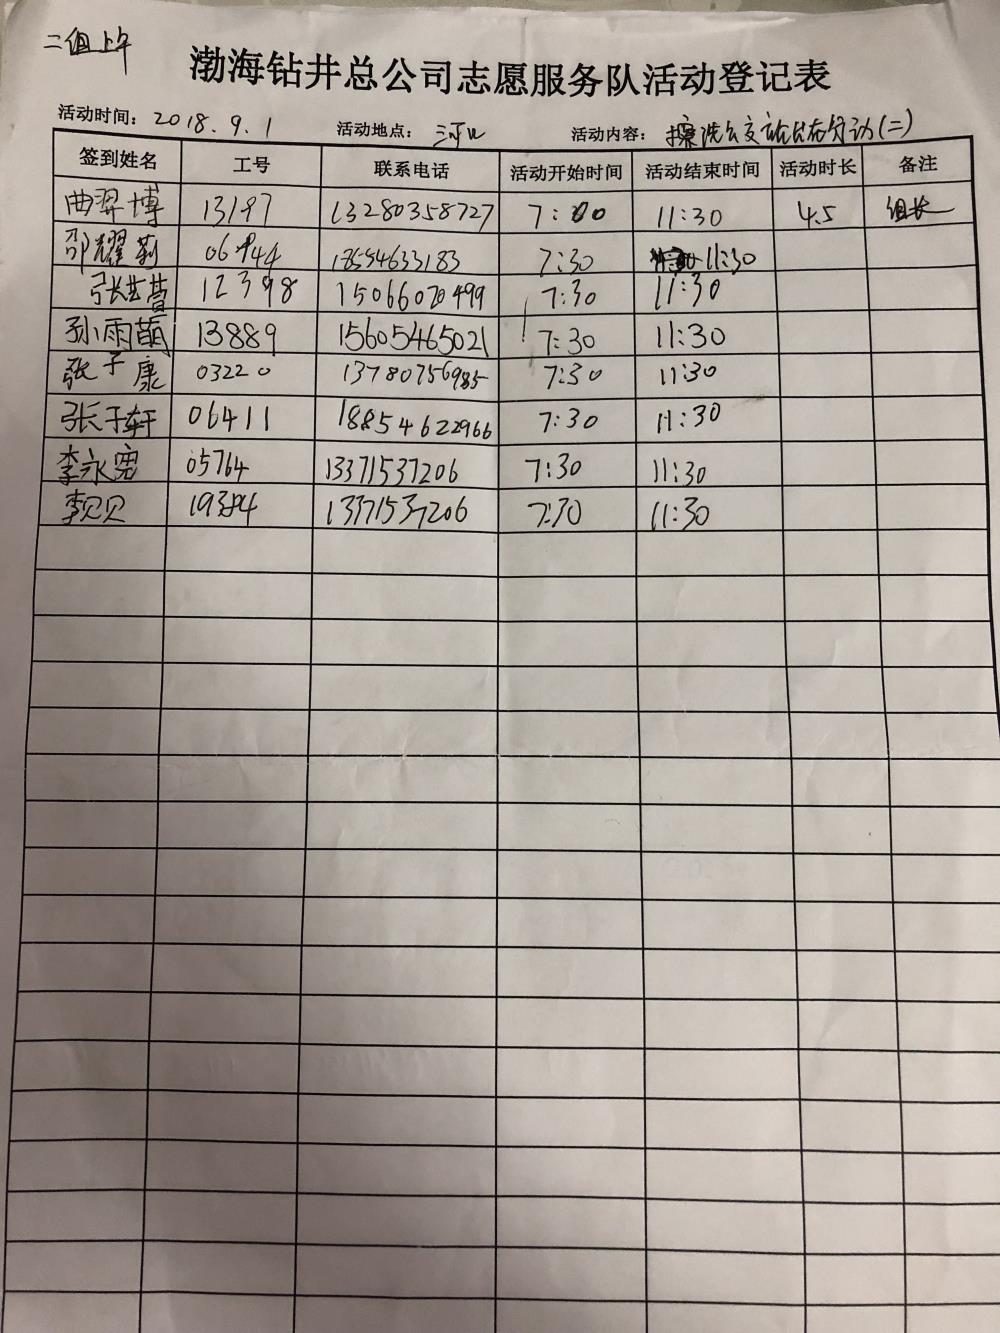 二组上午
渤海钻井总公司志愿服务队活动登记表
活动时间：2018.9.1 活动地点：三河口 活动内容：擦洗公交站台活动(二)
签到姓名 工号 联系电话 活动开始时间 活动结束时间 活动时长 备注
曲羿博 13197 13280358727 7:00 11:30 4.5 组长
邵耀莉 06944 18554633183 7:30 11:30
张芸萱 12398 15066070499 7:30 11:30
孙雨萌 13889 15605465021 7:30 11:30
张子康 03220 13780756985 7:30 11:30
张子轩 06411 18854622966 7:30 11:30
李永宪 05764 13371537206 7:30 11:30
李贝贝 13371537206 7:30 11:30